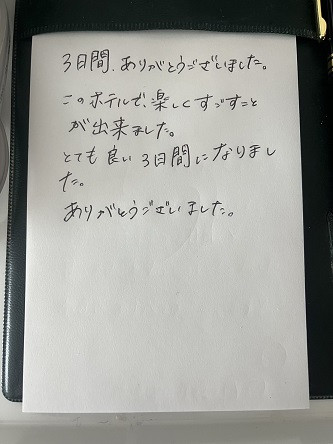 3日間、ありがとうございました。
このホテルで、楽しくすごすこと
が出来ました。
とても良い3日間になりまし
た。
ありがとうございました。